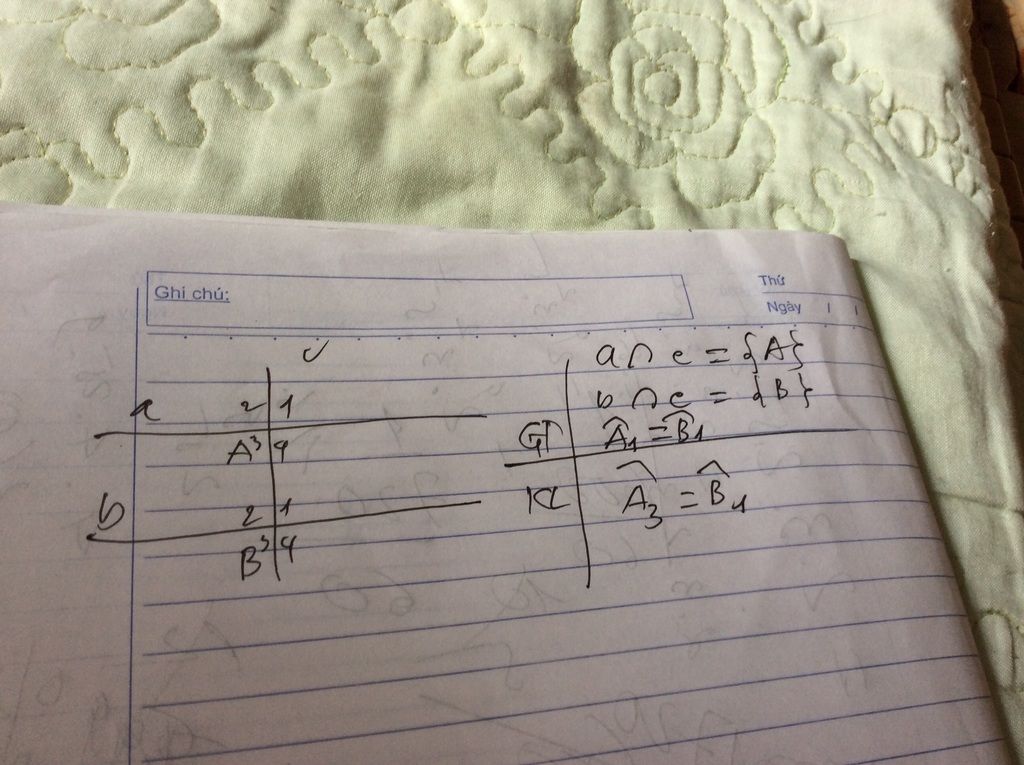 Ghi chú:
Thứ
Ngày / /
c
a 2 1
A 3 4
b 2 1
B 3 4
a ∩ c = {A}
b ∩ c = {B}
GT Â1 = B̂1
KL Â3 = B̂1